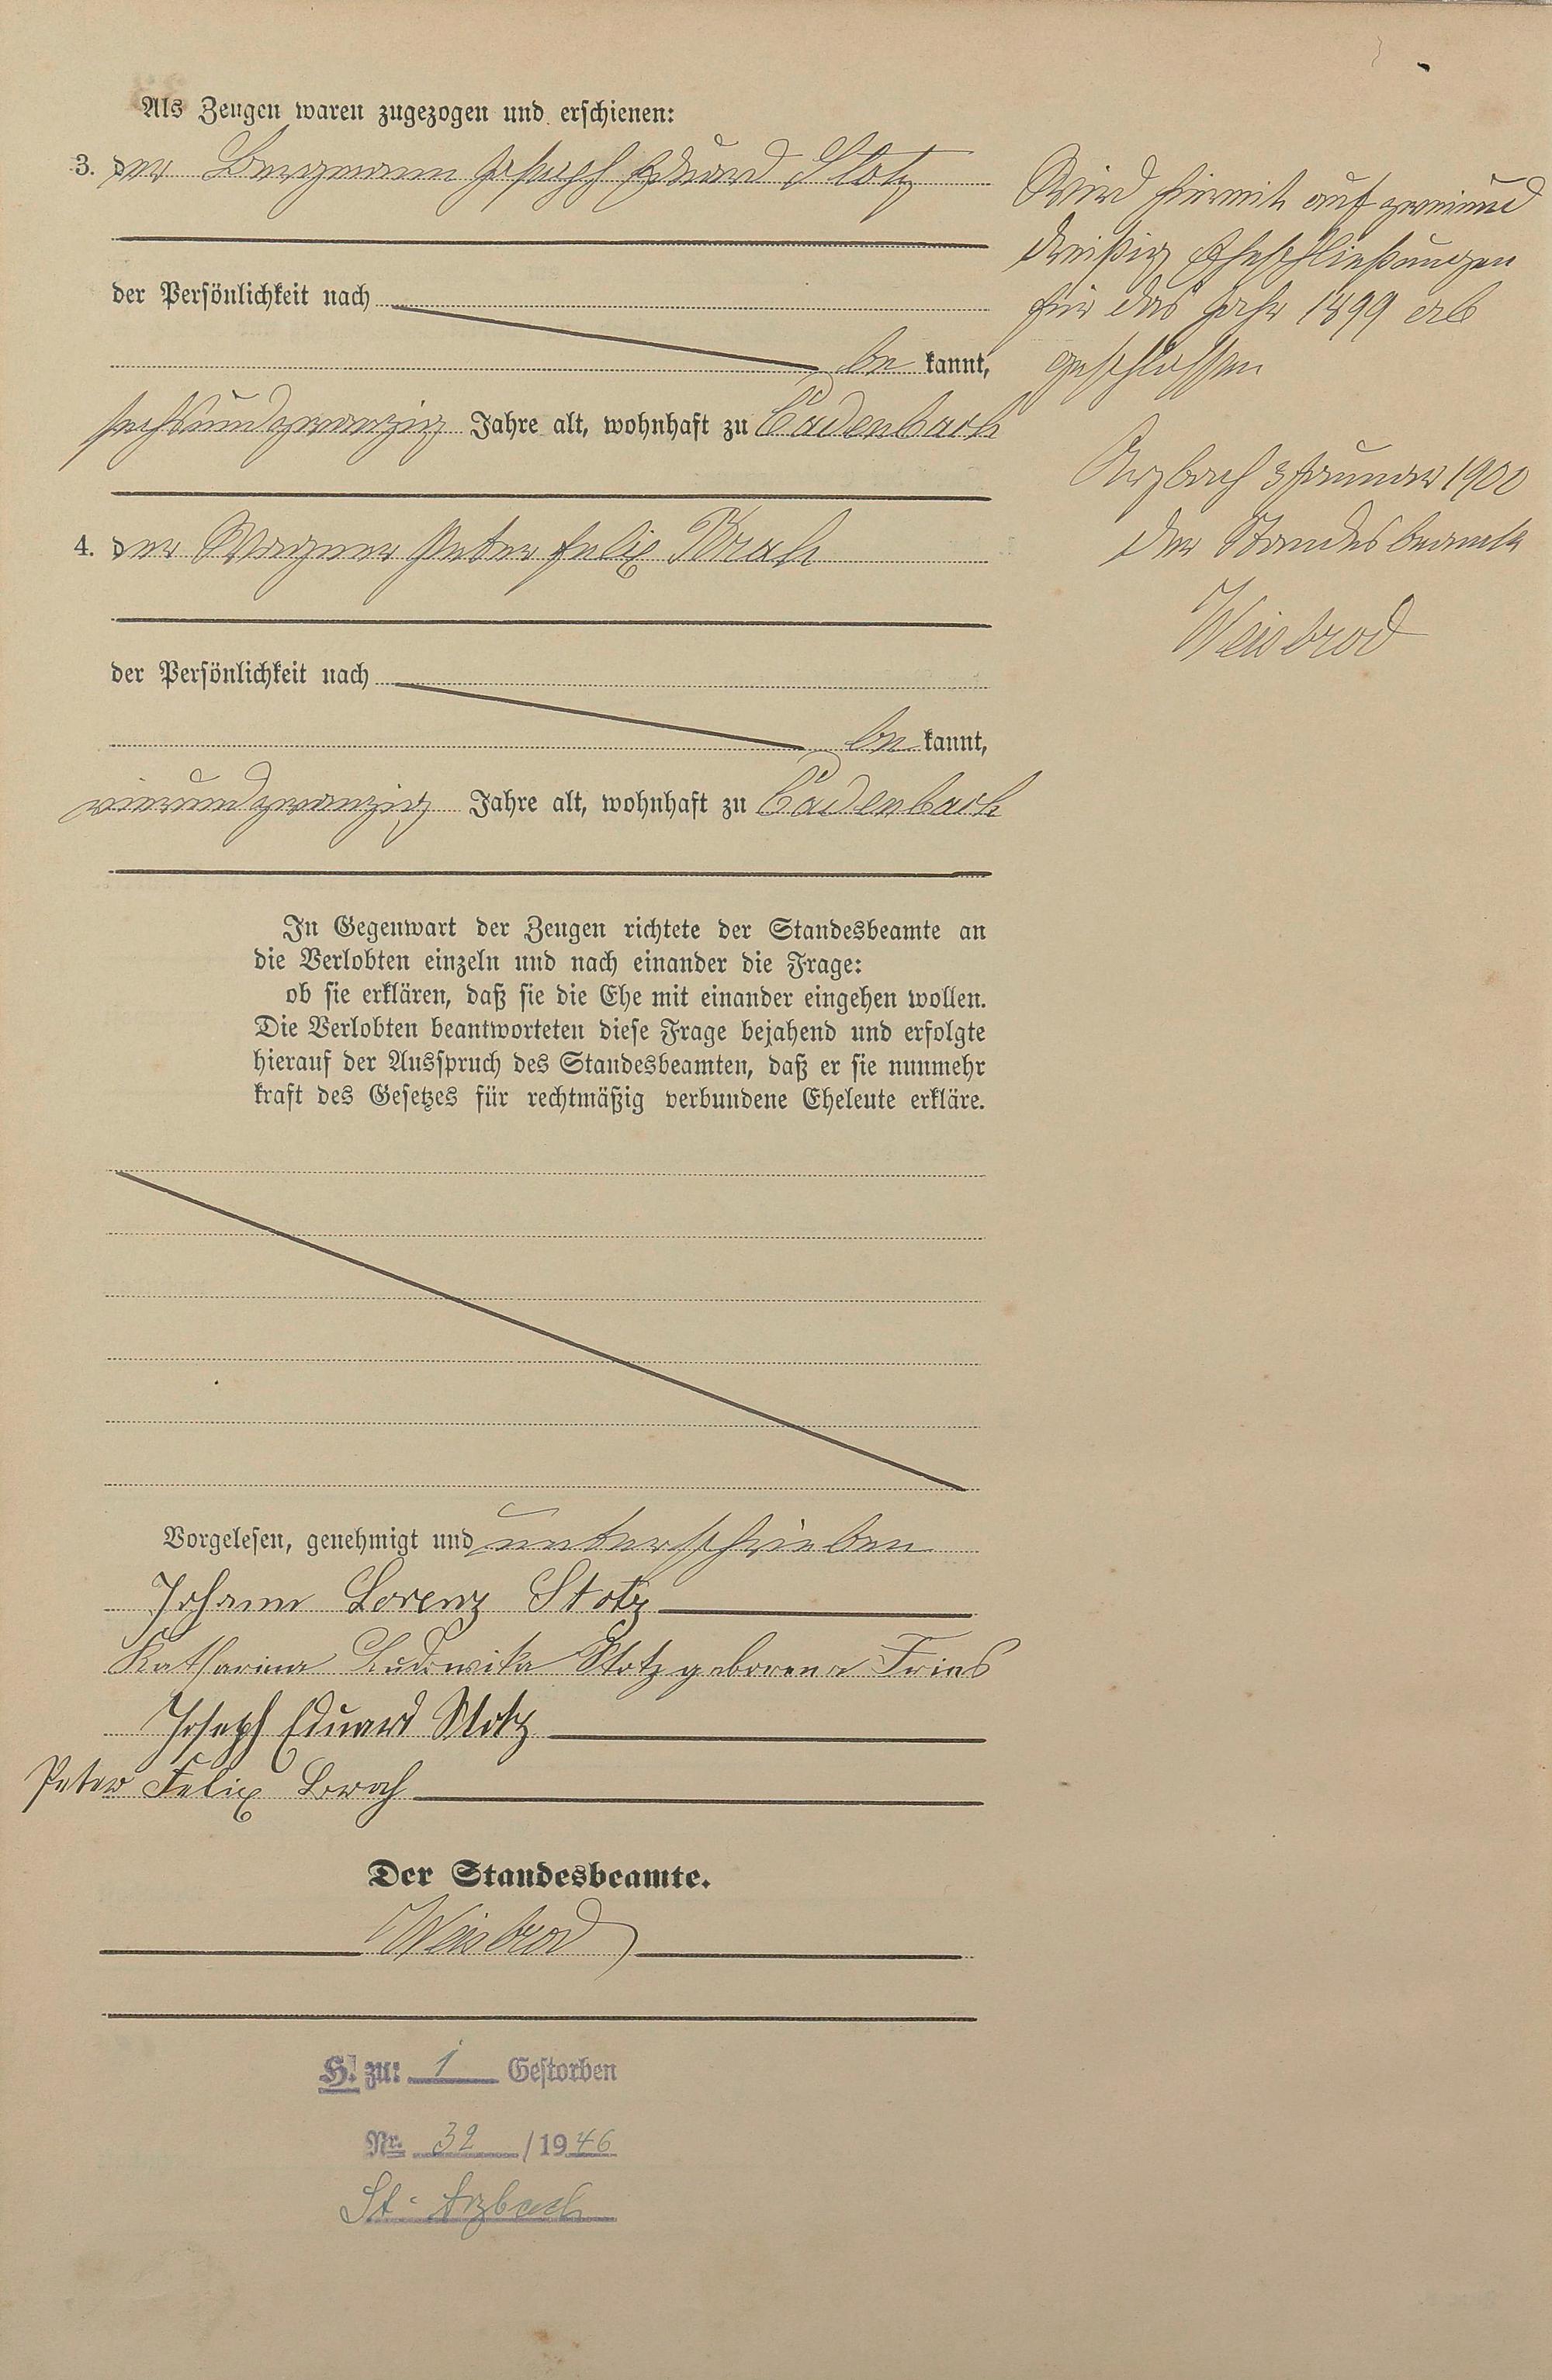 Als Zeugen waren zugezogen und erschienen:
3. der Bergmann Joseph Eduard Stotz
der Persönlichkeit nach
be kannt,
sechsundzwanzig Jahre alt, wohnhaft zu Cadenbach
4. der Wagner Peter Felix Brah
der Persönlichkeit nach
be kannt,
vierundzwanzig Jahre alt, wohnhaft zu Cadenbach
In Gegenwart der Zeugen richtete der Standesbeamte an
die Verlobten einzeln und nach einander die Frage:
ob sie erklären, daß sie die Ehe mit einander eingehen wollen.
Die Verlobten beantworteten diese Frage bejahend und erfolgte
hierauf der Ausspruch des Standesbeamten, daß er sie nunmehr
kraft des Gesetzes für rechtmäßig verbundene Eheleute erkläre.
Vorgelesen, genehmigt und unterschrieben
Johann Lorenz Stotz
Katharina Ludowika Stotz geborene Fries
Joseph Eduard Stotz
Peter Felix Brach
Der Standesbeamte.
Weisbrod
H. zu: 1 Gestorben
Nr. 32 / 1946
St. Arzbach
Wird hiermit auf zweiund
dreißig Eheschließungen
für das Jahr 1899 ab
geschlossen
Arzbach 3 Januar 1900
Der Standesbeamte
Weisbrod